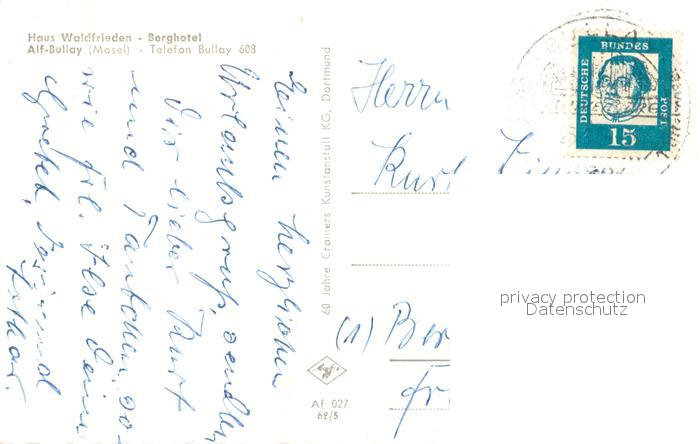 Haus Waldfrieden - Berghotel
Alf-Bullay (Mosel) - Telefon Bullay 608
Einen herzlichen
Urlaubsgruß, sendet
Dir lieber Kurt
und Tantchen, so-
wie Frl. Ilse Deine
Grosted,
Lothar.
60 Jahre Cramers Kunstanstalt KG, Dortmund
Herrn
Kurt
(1) Ber
Fr
Agfa
AF 027
62/5
DEUTSCHE
BUNDES
POST
15
privacy protection
Datenschutz